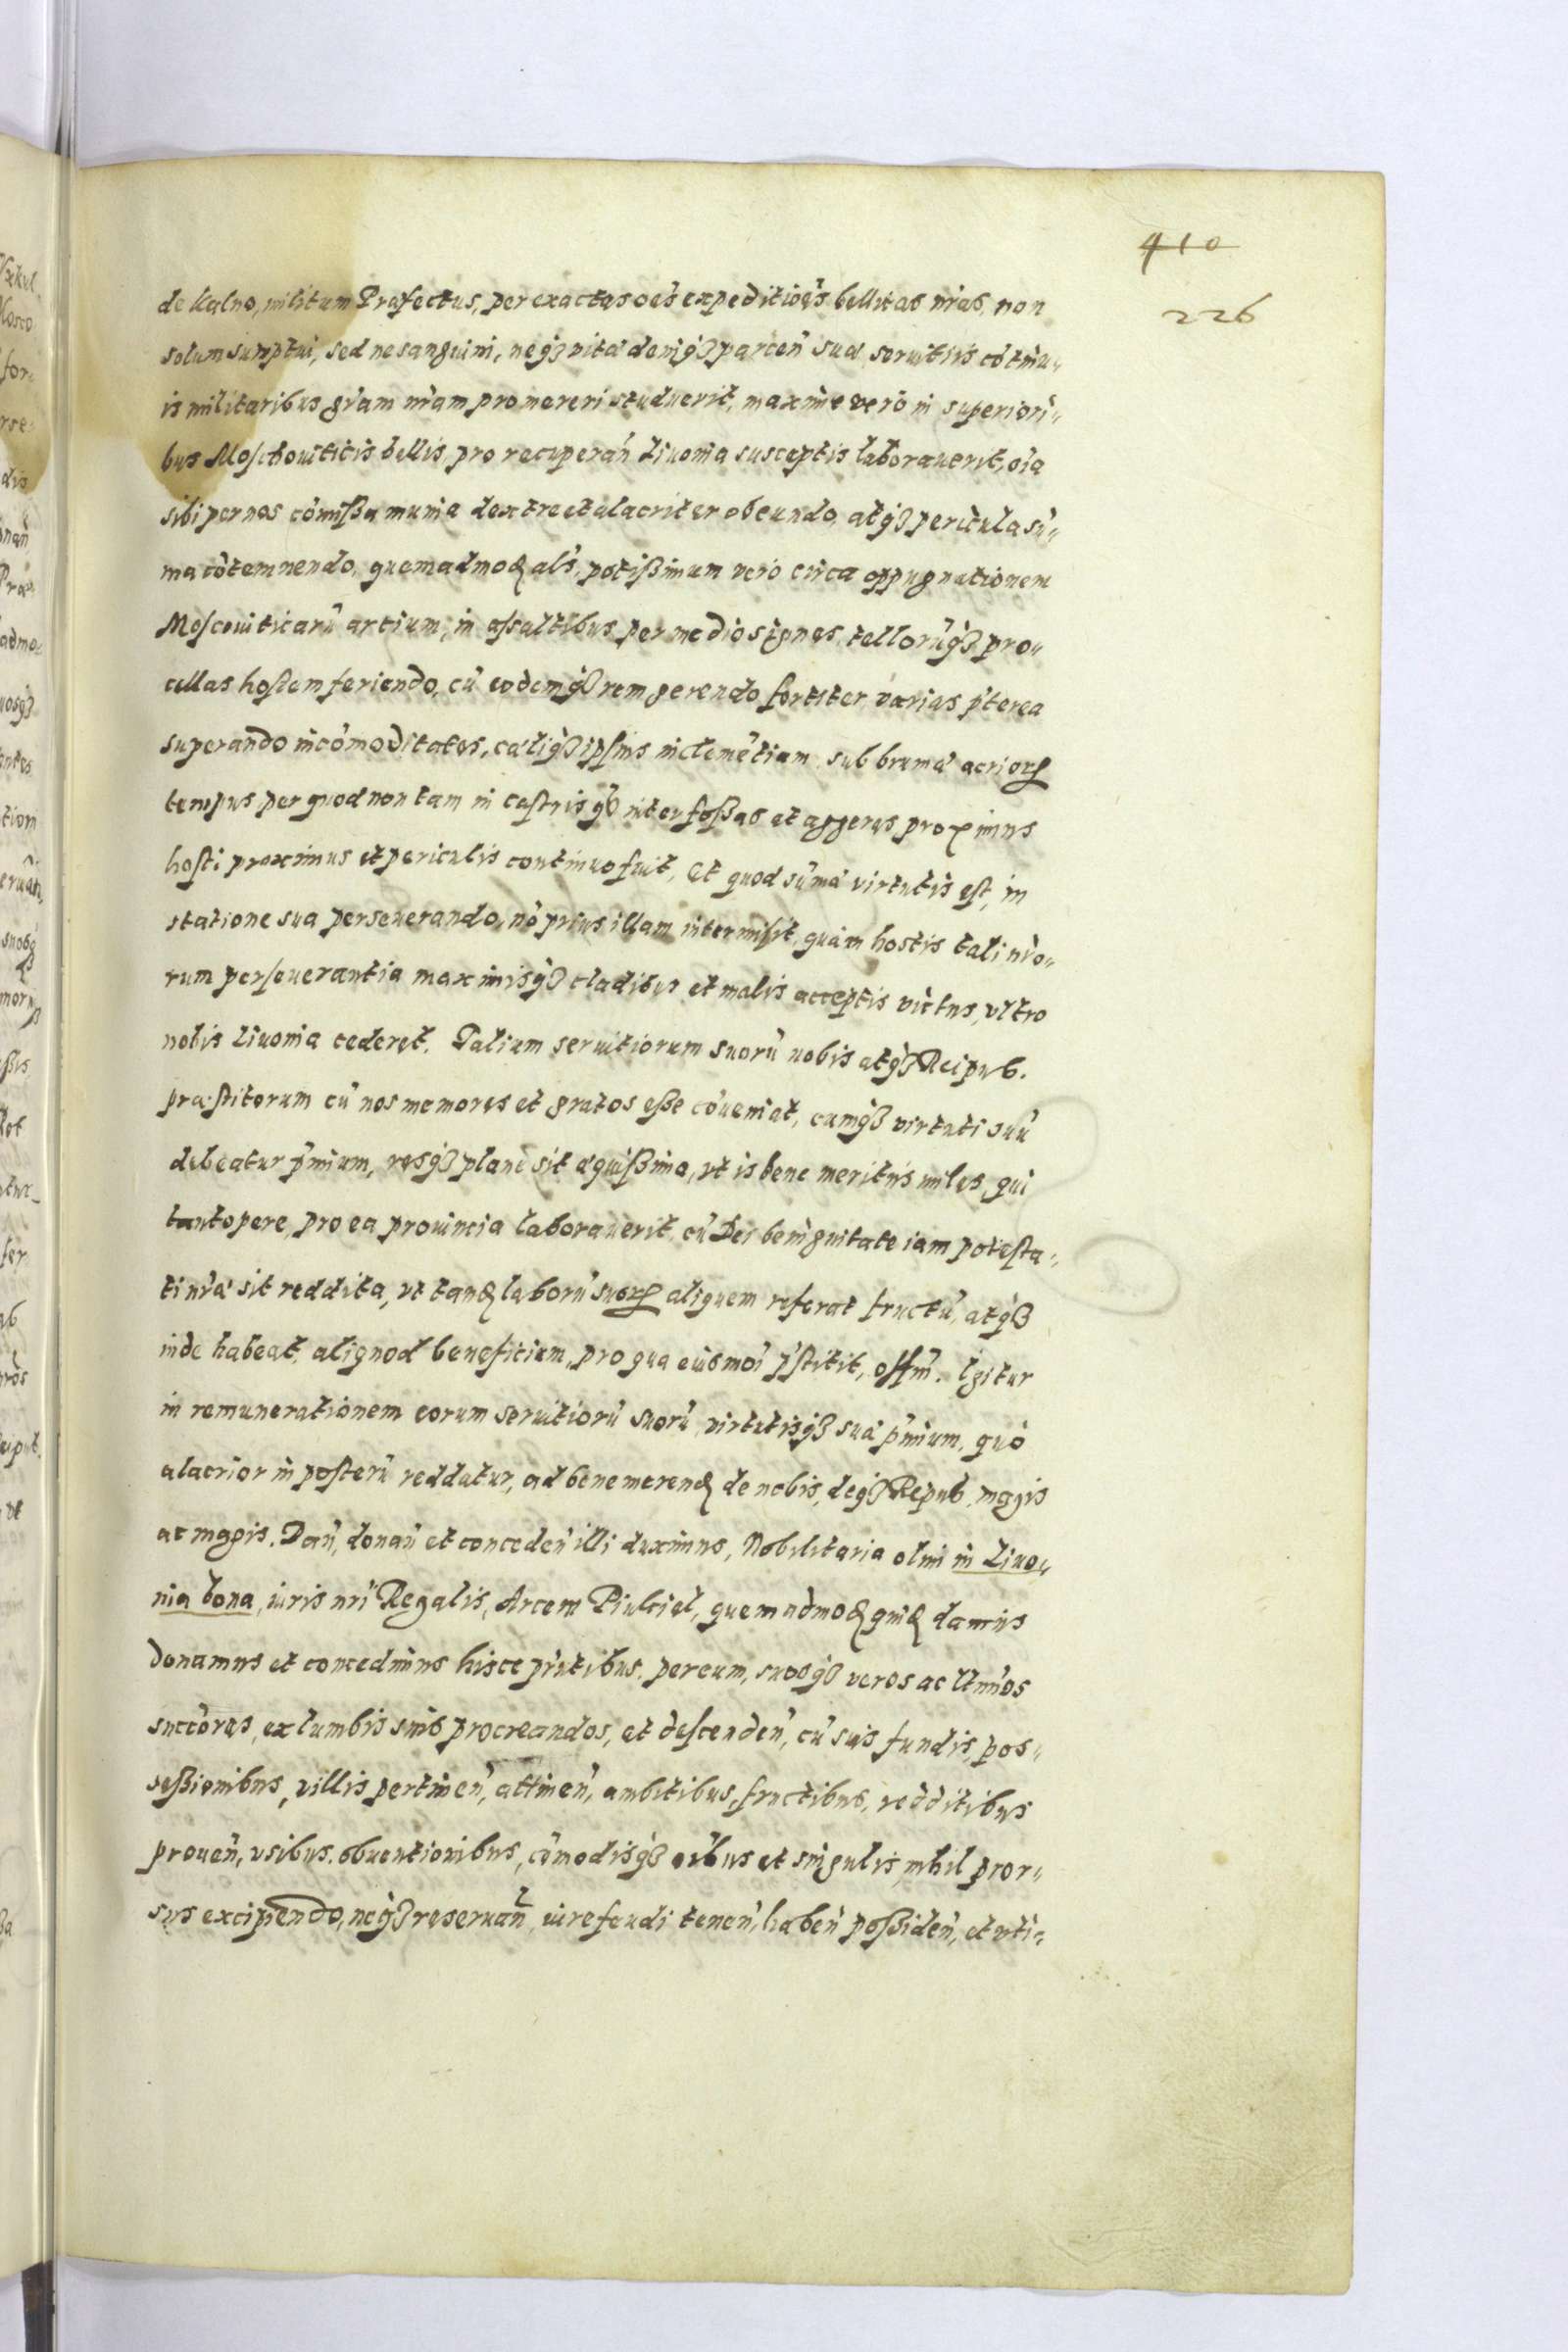 410
226
de Kalno, militum Præfectus, per exactas oẽs expeditiões bellicas nr̃as, non
solum sumptui, sed ne sanguini, neqȝ vitæ deniqȝ parcen̄ suæ, seruitijs cōtinu„
is militaribus gr̃am nr̃am promereri studuerit, maxime verò in superiori„
bus Moschouiticis bellis, pro recuperan̄ Liuonia susceptis laborauerit, oĩa
sibi per nos cōmissa munia dextre et alacriter obeundo, atqȝ pericula sū„
ma cōtemnendo, quemadmodꝫ aĺs, potissimum verò circa oppugnationem
Moscouiticarū arcium, in assaltibus per medios ignes, tellorūqȝ pro„
cellas hostem feriendo, cū eodemqȝ rem gerendo fortiter, varias p̃terea
superando incōmoditates, cæliqȝ ipsius inclemẽtiam, sub brumæ acrioꝝ
tempus per quod non tam in castris qȝ inter fossas et aggeres proximus
hosti proximus et periculis continuo fuit, Et quod sūmæ virtutis est, in
statione sua perseuerando, nō prius illam intermisit, quàm hostis tali nr̃o„
rum perseuerantia maximisqȝ cladibus et malis acceptis victus, vltro
nobis Liuonia cederet. Talium seruitiorum suorū nobis atqȝ Reipub.
præstitorum cū nos memores et gratos esse cōueniat, cumqȝ virtuti suū
debeatur p̃mium, resqȝ planè sit æquissima, vt is bene meritus miles, qui
tantopere, pro ea prouincia laborauerit, cū Dei benignitate iam potesta„
ti nr̃æ sit reddita, vt tandꝫ laborū suoꝝ aliquem referat fructū, atqȝ
inde habeat, aliquod beneficium, pro qua eiusmoi p̃stitit, offm̃. Igitur
in remunerationem eorum seruitiorū suorū, virtutisqȝ suæ p̃mium, quò
alacrior in posterū reddatur, ad bene merendꝫ de nobis, deqȝ Repub, magis
ac magis. Dan̄, donan̄ et conceden̄ illi duximus, Nobilitaria olim in Liuo„
nia bona, iuris nr̃i Regalis, Arcem Piulciel, quemadmodꝫ quidꝫ damus
donamus et concedimus hisce pñtibus, per eum, suosqȝ veros ac ltimos
succores, ex lumbis suis procreandos, et descenden̄, cū suis fundis, pos„
sessionibus, villis pertinen̄, attinen̄, ambitibus, fructibus, redditibus
prouen̄, vsibus, obuentionibus, cōmodisqȝ oĩbus et singulis, nihil pror„
sus excipiendo, neqȝ reseruan̄, iure feudi tenen̄, haben̄ possiden̄, et vti„